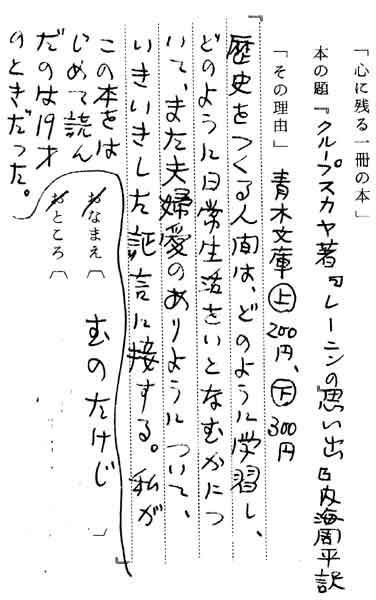 「心に残る一冊の本」
本の題『クループスカヤ著『レーニンの思い出』内海周平訳
「その理由」 青木文庫㊤200円、㊦300円
『歴史をつくる人間は、どのように学習し、
どのように日常生活をいとなむかにつ
いて、また夫婦愛のありようについて、
いきいきした証言に接する。私が
この本をは
じめて読ん
だのは19才
のときだった。
』
おなまえ〔 むのたけじ 〕
おところ〔